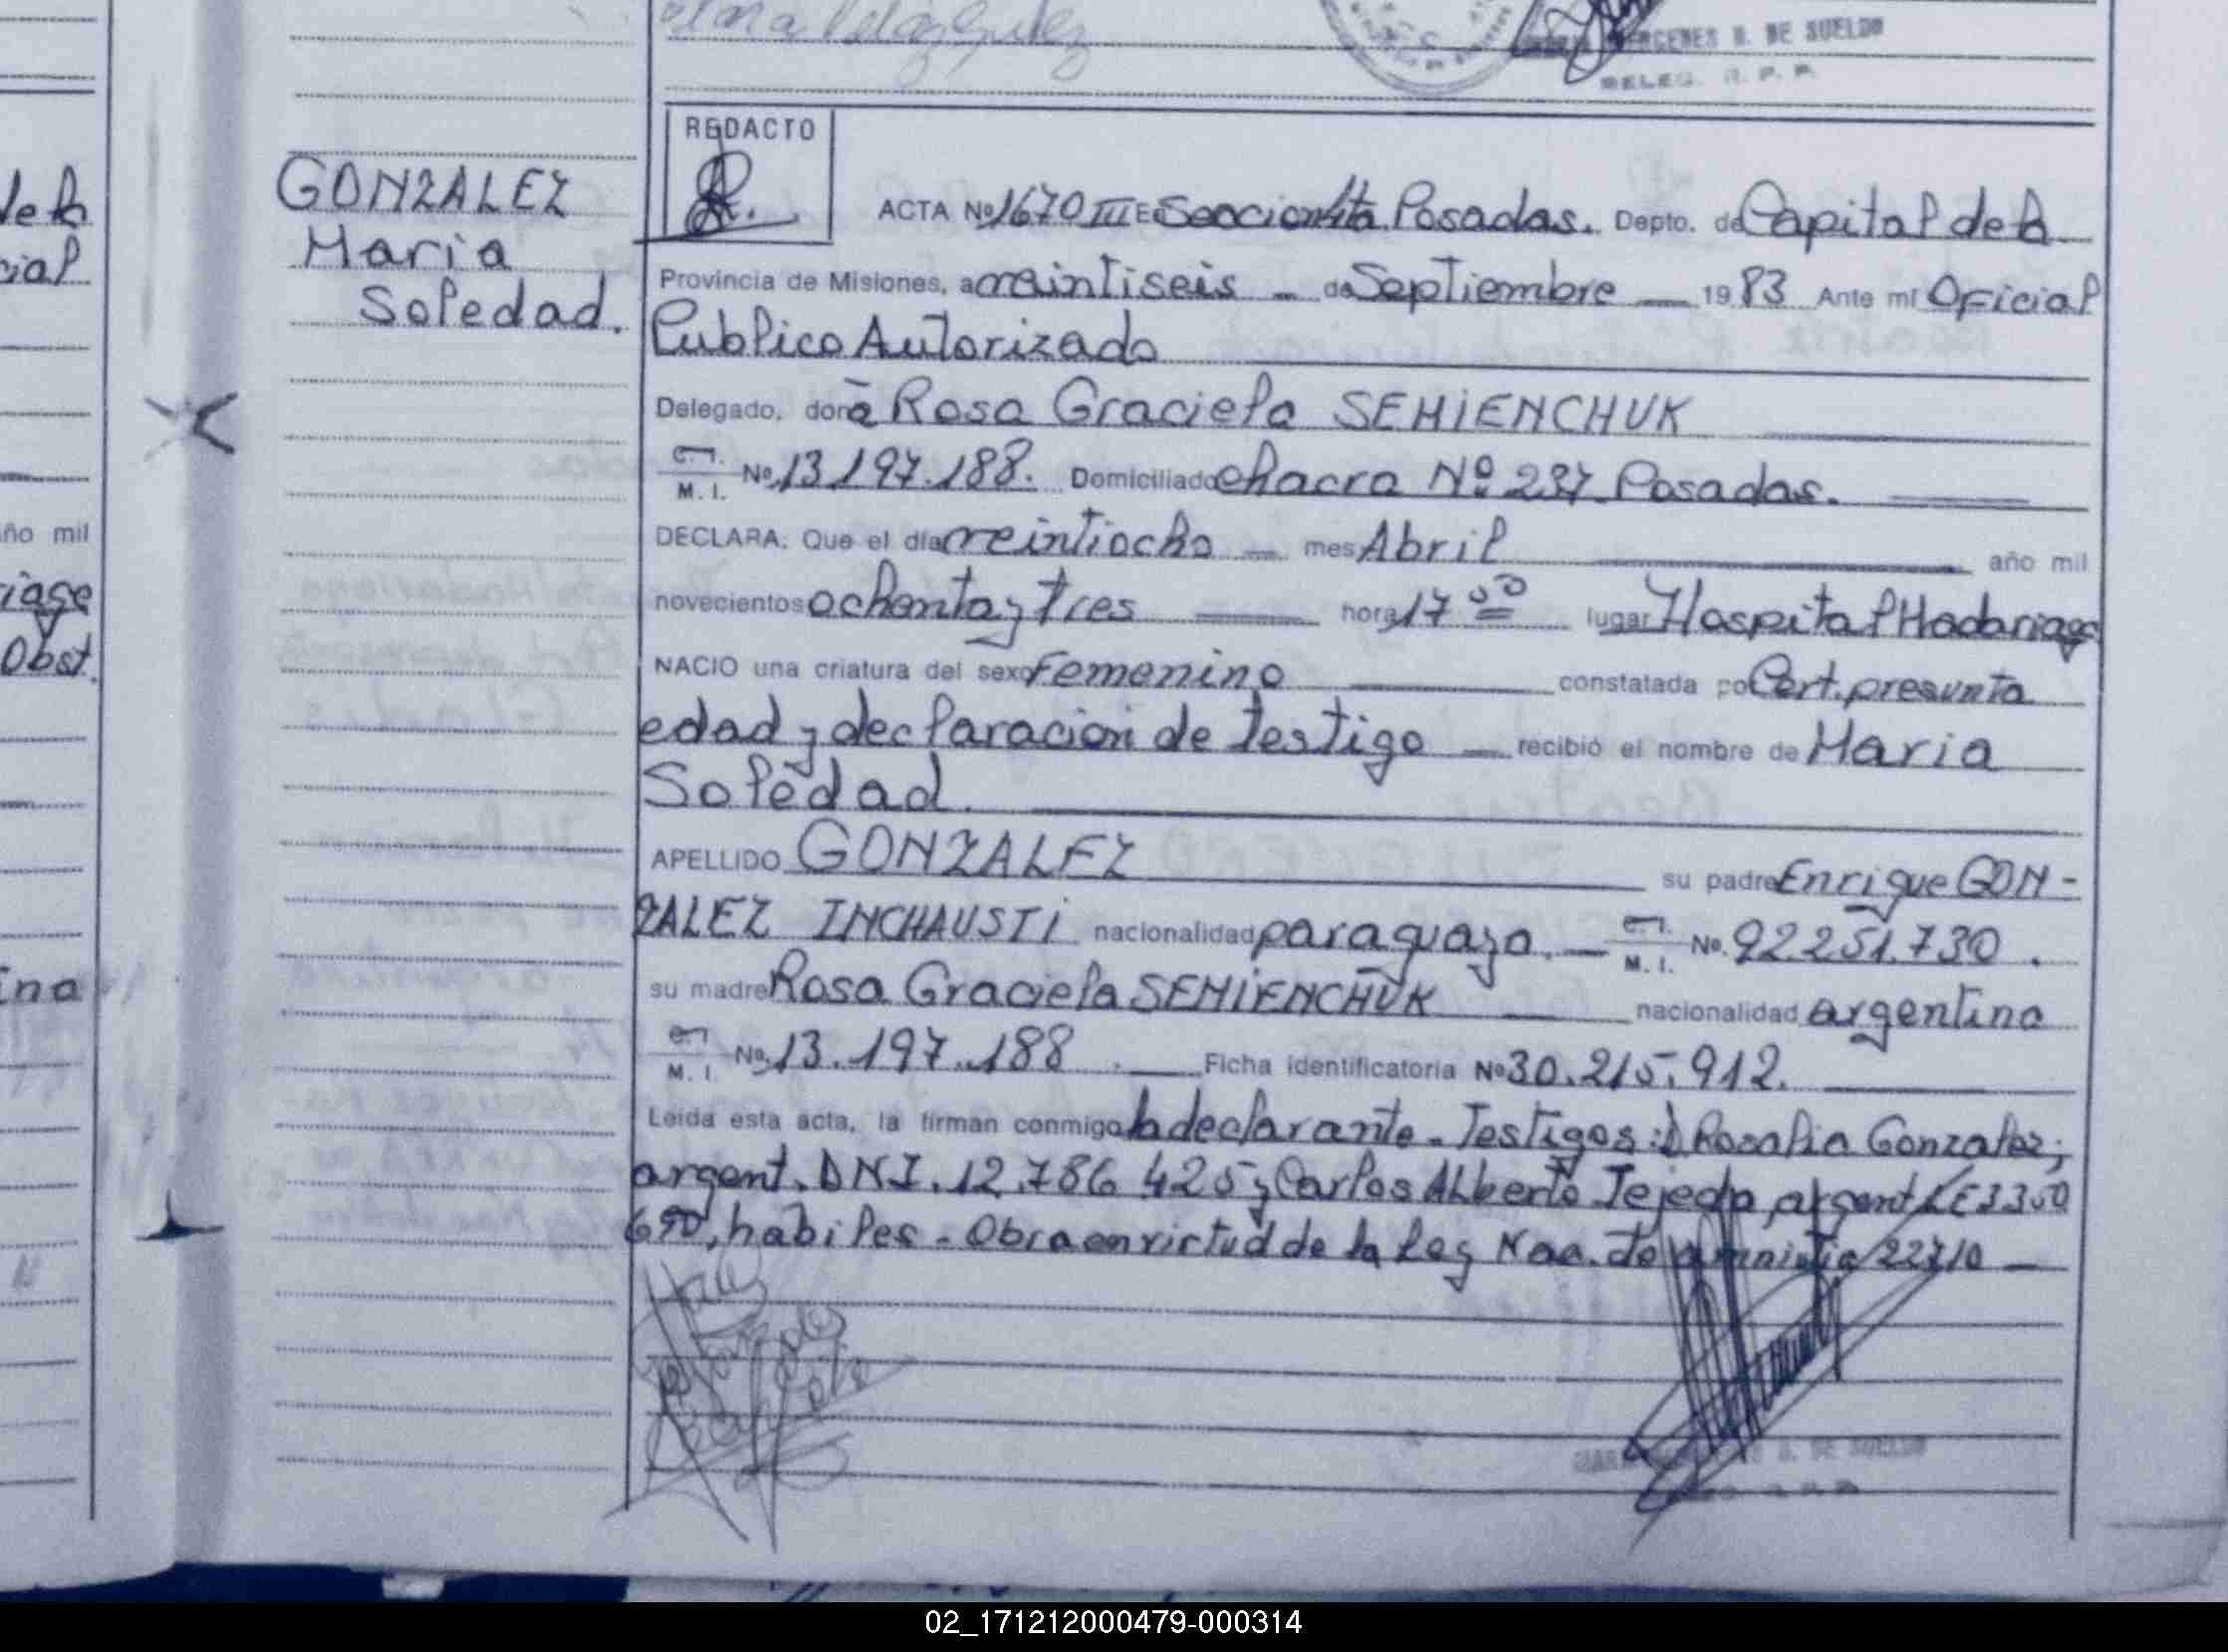 de la
cial
año mil
riaga
Obst.
ina
GONZALEZ
Maria
Soledad.
GENES U. DE SUELDO
DELEG. R. P. P.
REDACTO
ACTA No 1670 III Seccion 4ta Posadas. Depto. de Capital de la
Provincia de Misiones, a veintiseis - de Septiembre - 1983 Ante mi Oficial
Publico Autorizado
Delegado, doña Rosa Graciela SEMIENCHUK
M. I. No 13.197.188. Domiciliado chacra Nº 237 Posadas.
DECLARA: Que el día veintiocho - mes Abril año mil
novecientos ochenta y tres hora 17 00 lugar Hospital Madariaga
NACIO una criatura del sexo Femenino constatada po Cert. presunta
edad y declaracion de testigo - recibió el nombre de Maria
Soledad.
APELLIDO GONZALEZ su padre Enrique GON-
ZALEZ INCHAUSTI nacionalidad paraguaya. - M. I. No. 92.251.730.
su madre Rosa Graciela SEMIENCHUK nacionalidad argentina
M. I. No. 13.197.188. Ficha identificatoria No 30.215.912.
Leída esta acta, la firman conmigo la declarante - Testigos: Rosalia Gonzalez;
argent. DNI. 12.786.425 y Carlos Alberto Tejeda argent LE 3350
690, habiles - Obra en virtud de la Ley Nac. de amnistia 22710 -
U. DE SUELDO
02_171212000479-000314